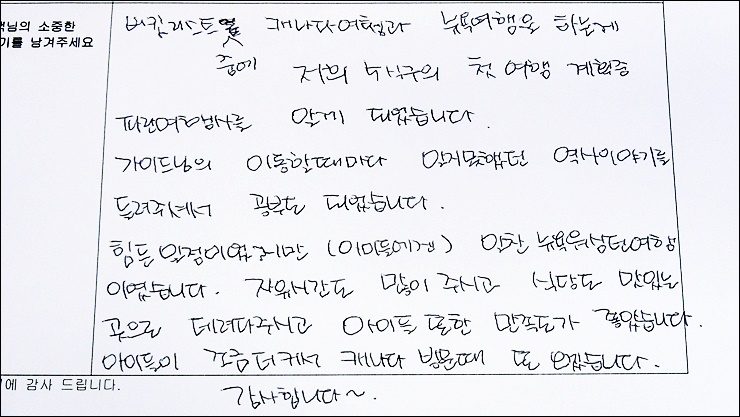 객님의 소중한
기를 남겨주세요
버킷리스트 캐나다여행과 뉴욕여행을 하는게
중에 저희 4식구의 첫 여행 계획중
파란여행사를 알게 되었습니다.
가이드님의 이동할때마다 알지못했던 역사이야기를
들려주셔서 공부도 되었습니다.
힘든일정이었지만 (아이들에겐) 알찬 뉴욕워싱턴여행
이였습니다. 자유시간도 많이 주시고 식당도 맛있는
곳으로 데려다주시고 아이들 또한 만족도가 좋았습니다.
아이들이 조금 더커서 캐나다 방문때 또 오겠습니다.
에 감사 드립니다.
감사합니다~.